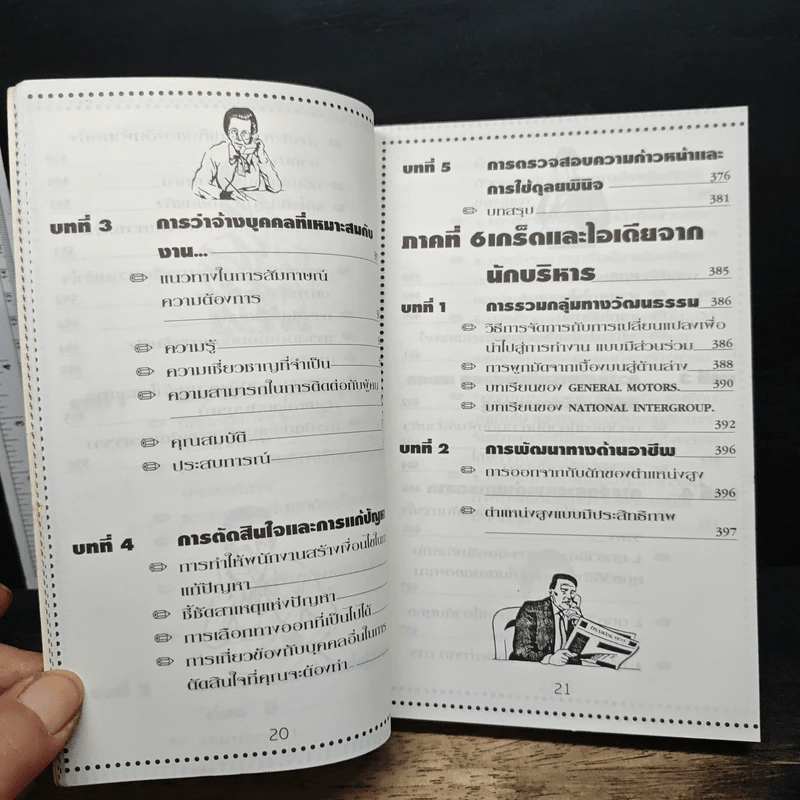 บทที่ 3 การว่าจ้างบุคคลที่เหมาะสมกับ
งาน...
แนวทางในการสัมภาษณ์
ความต้องการ
ความรู้
ความเชี่ยวชาญที่จำเป็น
ความสามารถในการติดต่อกับผู้คน
คุณสมบัติ
ประสบการณ์
บทที่ 4 การตัดสินใจและการแก้ปัญหา
การทำให้พนักงานสร้างเงื่อนไขใน
แก้ปัญหา
ชี้ชัดสาเหตุแห่งปัญหา
การเลือกทางออกที่เป็นไปได้
การเกี่ยวข้องกับบุคคลอื่นในการ
ตัดสินใจที่คุณจะต้องทำ
20
บทที่ 5 การตรวจสอบความก้าวหน้าและ
การใช้ดุลยพินิจ 376
บทสรุป 381
ภาคที่ 6เกร็ดและไอเดียจาก
นักบริหาร 385
บทที่ 1 การรวมกลุ่มทางวัฒนธรรม 386
วิธีการจัดการกับการเปลี่ยนแปลงเพื่อ
นำไปสู่การทำงาน แบบมีส่วนร่วม 386
การผูกมัดจากเบื้องบนสู่ด้านล่าง 388
บทเรียนของ GENERAL MOTORS. 390
บทเรียนของ NATIONAL INTERGROUP.
392
บทที่ 2 การพัฒนาทางด้านอาชีพ 396
การออกจากกับดักของตำแหน่งสูง
396
ตำแหน่งสูงแบบมีประสิทธิภาพ
397
FINANCIAL NEWS
21